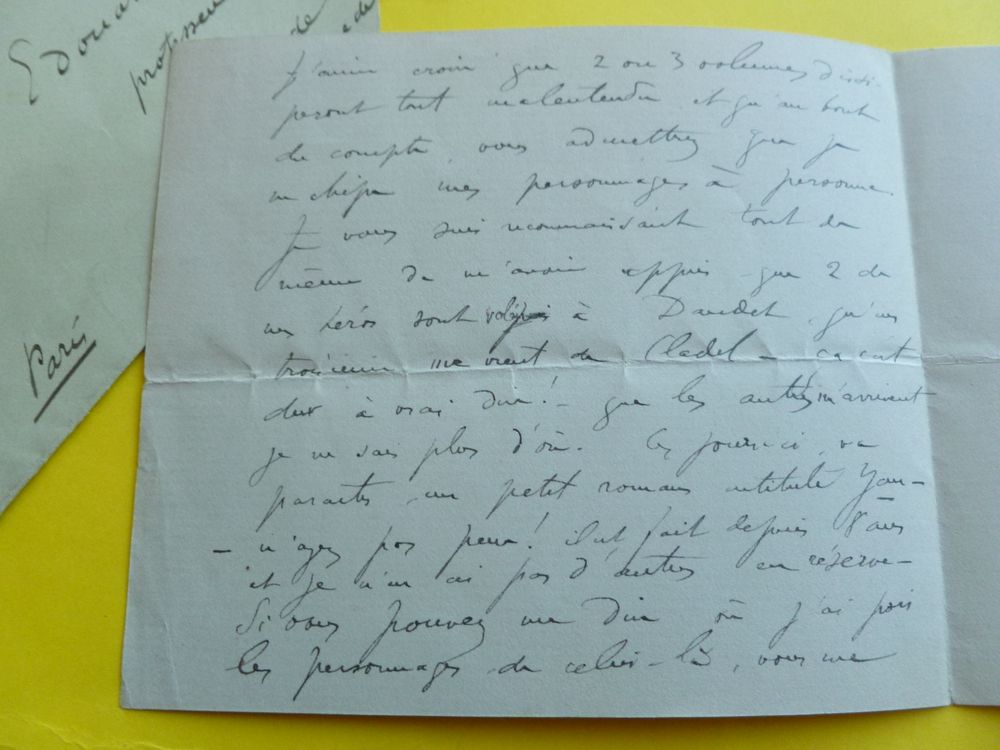 Edouard
professeur
de
de
Paris
J'aime croire que 2 ou 3 volumes dissi-
peront tout malentendu et qu'au bout
du compte, vous admettrez que je
ne chipe mes personnages à personne.
Je vous suis reconnaissant tout de
même de m'avoir appris que 2 de
mes héros sont volés à Daudet, qu'un
troisième me vient de Cladel — ça c'est
dur à vrai dire! — que les autres m'arrivent
je ne sais plus d'où. Ces jours-ci, va
paraître un petit roman intitulé Yan —
— n'ayez pas peur! il est fait depuis 8 ans
et je n'en ai pas d'autres en réserve —
Si vous pouvez me dire où j'ai pris
les personnages de celui-là, vous me